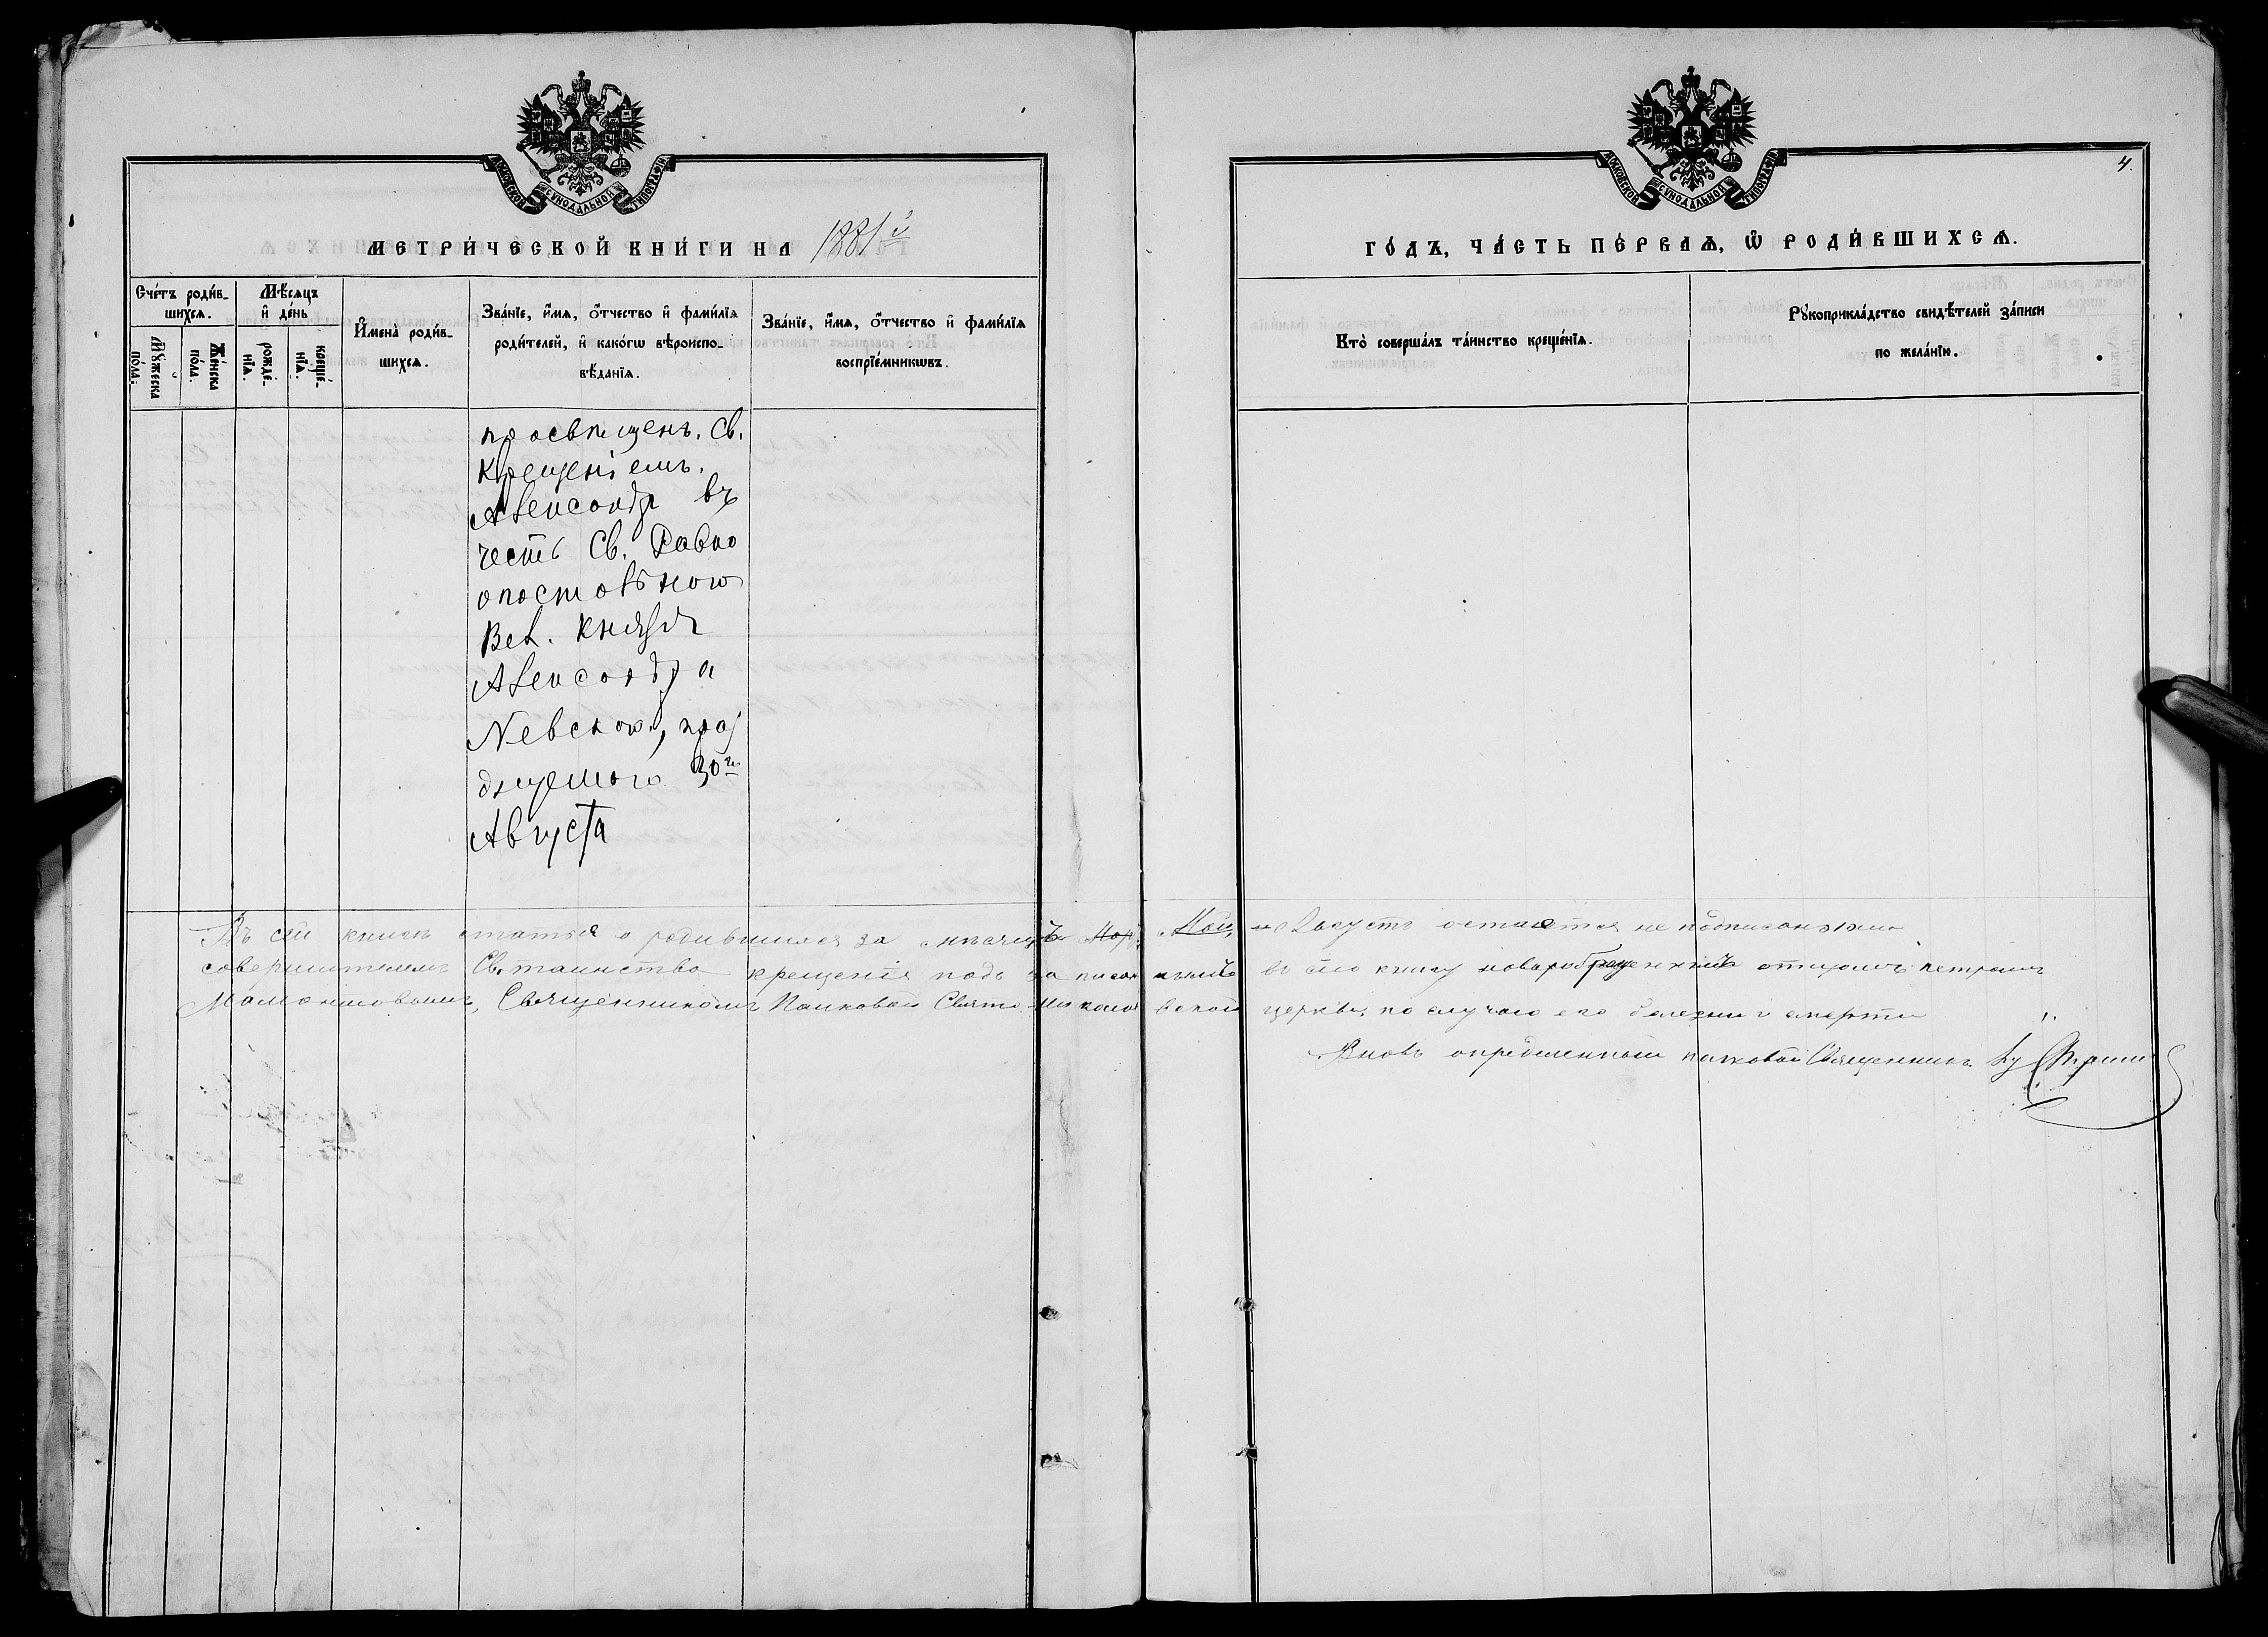 МОСКОВСКОЙ СѴНОДАЛЬНОЙ ТИПОГРАФІИ
МЕТРИ́ЧЕСКОЙ КНИ́ГИ НА 1881й
Сче́тъ роди́в-
шихсѧ.
Мꙋ́жеска
по́ла.
Же́нска
по́ла.
Мѣ́сѧцъ
и҆ де́нь
рожде́-
нїѧ.
креще́-
нїѧ.
И҆мена̀ роди́в-
шихсѧ.
Зва́нїе, и҆́мѧ, ѻ҆́тчество и҆ фами́лїѧ
роди́телей, и҆ како́гѡ вѣроиспо-
вѣ́данїѧ.
Зва́нїе, и҆́мѧ, ѻ҆́тчество и҆ фами́лїѧ
воспрїе́мникѡвъ.
просвѣщенъ. Св.
Крещеніемъ.
Александръ въ
честь Св. Равно
апостольного
Вел. Князя
Александра
Невского, праз
днуемого 30го
Августа
МОСКОВСКОЙ СѴНОДАЛЬНОЙ ТИПОГРАФІИ
4.
ГО́ДЪ, ЧА́СТЬ ПЕ́РВАѦ, Ѡ҆ РОДИ́ВШИХСѦ.
Кто̀ соверша́лъ та́инство креще́нїѧ.
Рꙋкоприкла́дство свидѣ́телей за́писи
по жела́нїю.
Въ сей книгѣ статья о родившихся за мѣсяцъ Мар. Май, и Августъ остается не подписанною
совершителемъ Св. таинства крещенія подъ записан въ сію книгу новаробращенный отцомъ Петромъ
Священникомъ Полковой Свято Николаевской церкви, по случаю его болезни и смерти
Вновь определенный полковой Священникъ